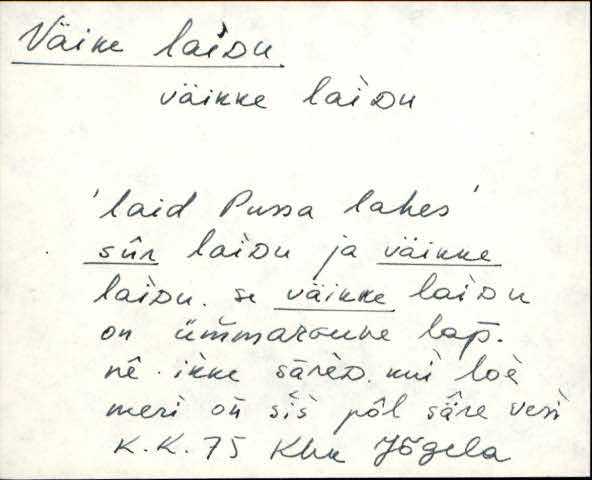 Väike laiDu
väikke laìDu
'laid Pussa lahes'
sûr laìDu ja väikke
laìDu. se väikke laìDu
on ümmaroune lap̄.
nê ikke särèD. kui loè
meri on sìs pôl säre vesi
K.K. 75 Khk Jõgela